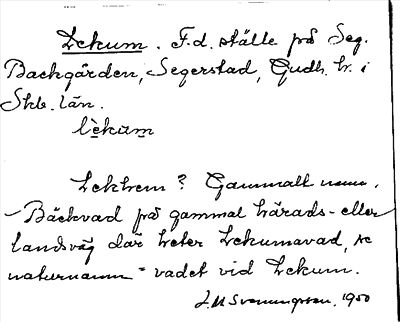 Lekum. F.d. ställe på Seg.
Backgården, Segerstad, Gudh. hr. i
Skb. län.
lèkum
Lekhem? Gammalt namn.
- Bäckvad på gammal härads- eller
landsväg där heter Lekumavad, se
naturnamn = vadet vid Lekum.
1950